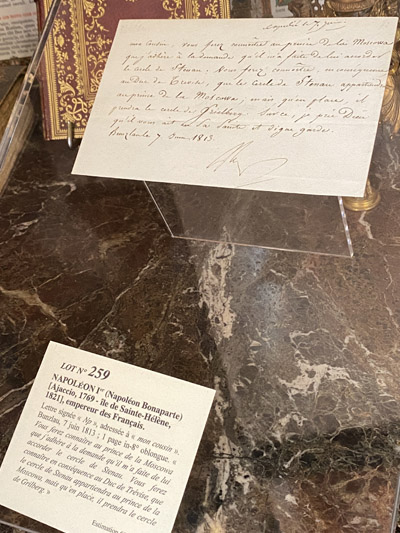 Bunzlau le 7 Juin
mon cousin, vous ferez connaitre au prince de la Moscowa
que j'adhère à la demande qu'il m'a faite de lui accorder
le cercle de Stenau. Vous ferez connaitre, en conséquence
au Duc de Trevise, que le Cercle de Stenau appartiendra
au prince de la Moscowa, mais qu'en place, il
prendra le cercle de Greilberg. Sur ce, je prie Dieu
qu'il vous ait en sa Sainte et digne garde.
Bunzlau le 7 Juin 1813.
Np
LOT N° 259
NAPOLÉON Ier (Napoléon Bonaparte)
[Ajaccio, 1769 - île de Sainte-Hélène,
1821], empereur des Français.
Lettre signée « Np », adressée à « mon cousin ».
Bunzlau, 7 juin 1813 ; 1 page in-8° oblongue. «
Vous ferez connaître au prince de la Moscowa
que j'adhère à la demande qu'il m'a faite de lui
accorder le cercle de Stenau. Vous ferez
connaître en conséquence au Duc de Trévise, que
le cercle de Stenau appartiendra au prince de la
Moscowa, mais qu'en place, il prendra le cercle
de Greiberg. »
Estimation